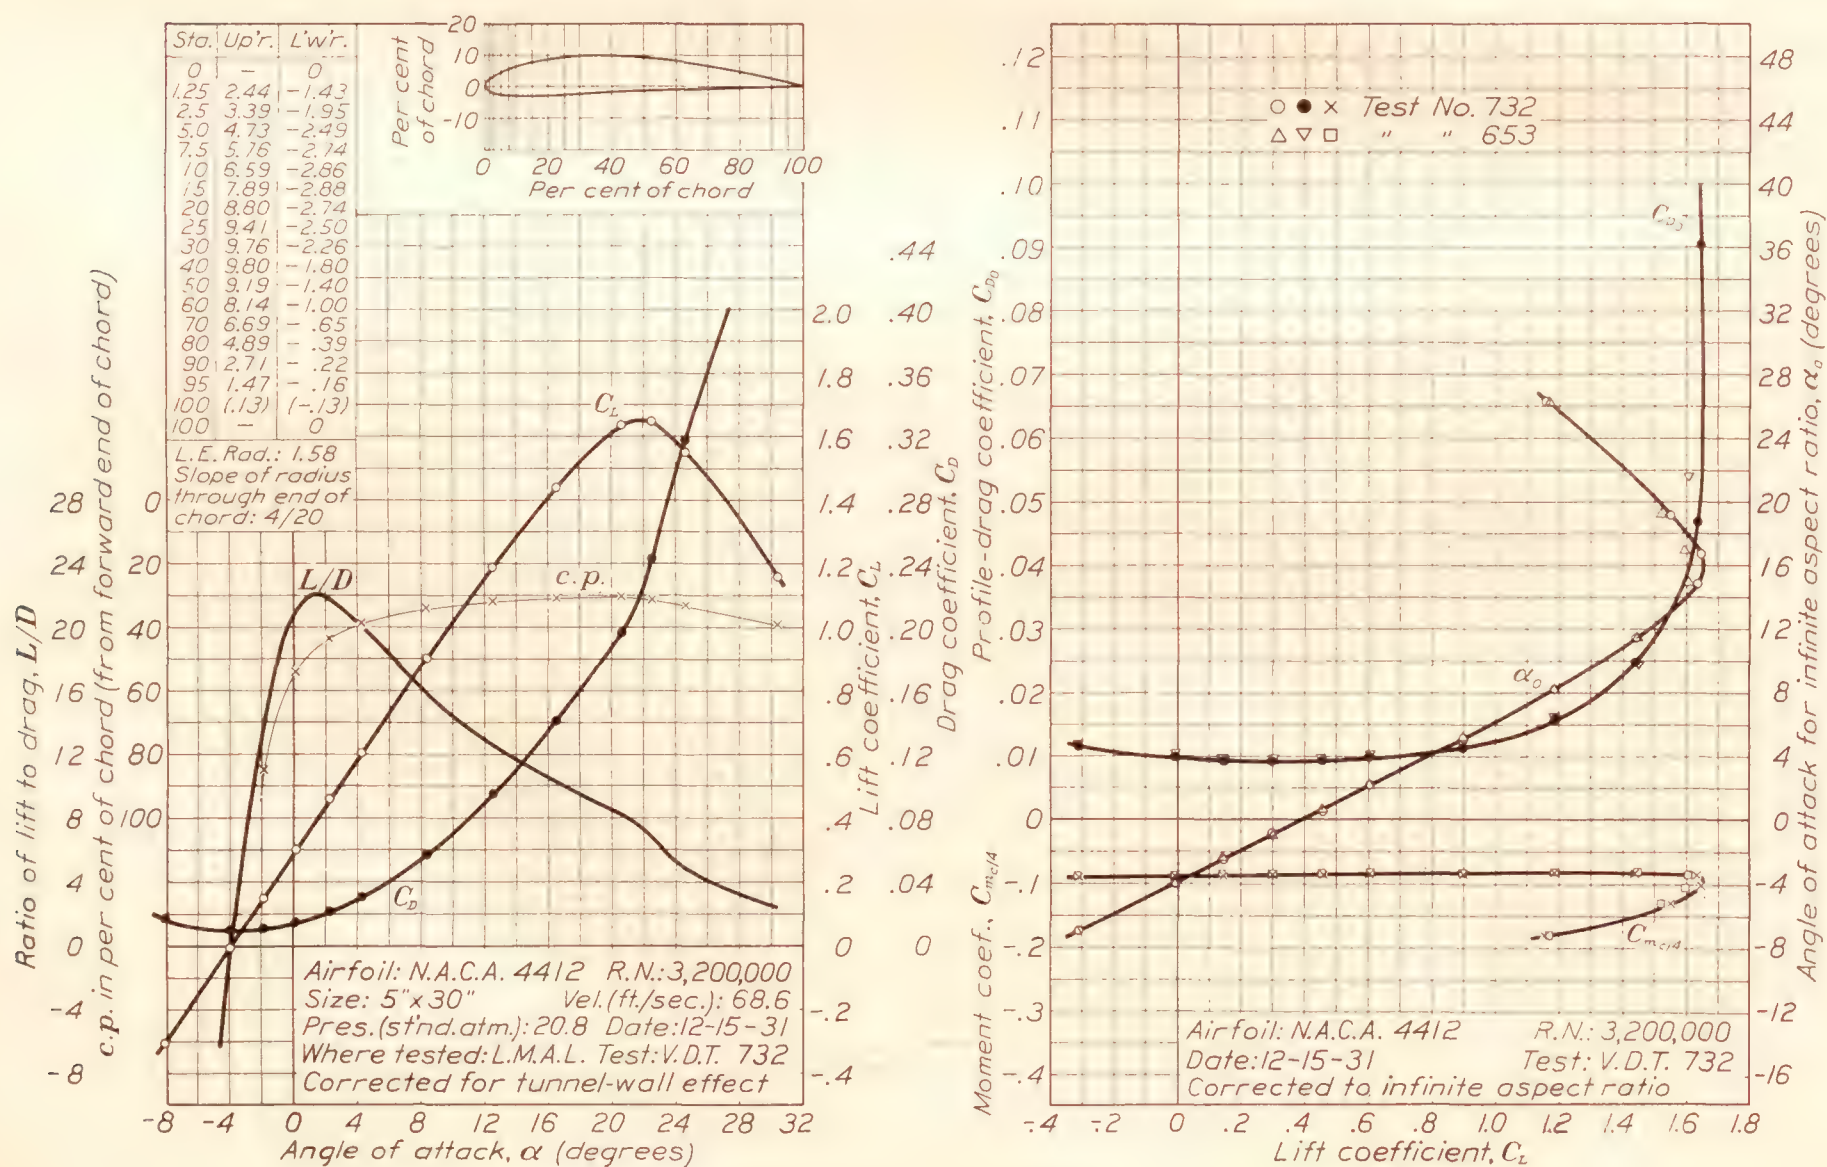 Sta. Up'r. L'w'r.
0 — 0
1.25 2.44 -1.43
2.5 3.39 -1.95
5.0 4.73 -2.49
7.5 5.76 -2.74
10 6.59 -2.86
15 7.89 -2.88
20 8.80 -2.74
25 9.41 -2.50
30 9.76 -2.26
40 9.80 -1.80
50 9.19 -1.40
60 8.14 -1.00
70 6.69 - .65
80 4.89 - .39
90 2.71 - .22
95 1.47 - .16
100 (.13) (-.13)
100 — 0
L.E. Rad.: 1.58
Slope of radius
through end of
chord: 4/20
Per cent
of chord
20
10
0
-10
0 20 40 60 80 100
Per cent of chord
Ratio of lift to drag, L/D
28
24
20
16
12
8
4
0
-4
-8
c.p. in per cent of chord (from forward end of chord)
0
20
40
60
80
100
L/D
c.p.
C_L
C_D
2.0
1.8
1.6
1.4
1.2
1.0
.8
.6
.4
.2
0
-.2
-.4
Lift coefficient, C_L
.44
.40
.36
.32
.28
.24
.20
.16
.12
.08
.04
0
Drag coefficient, C_D
Airfoil: N.A.C.A. 4412 R.N.: 3,200,000
Size: 5"x30" Vel.(ft./sec.): 68.6
Pres.(st'nd.atm.): 20.8 Date: 12-15-31
Where tested: L.M.A.L. Test: V.D.T. 732
Corrected for tunnel-wall effect
-8 -4 0 4 8 12 16 20 24 28 32
Angle of attack, α (degrees)
Profile-drag coefficient, C_D0
.12
.11
.10
.09
.08
.07
.06
.05
.04
.03
.02
.01
0
Moment coef., C_mc/4
-.1
-.2
-.3
-.4
○ ● × Test No. 732
△ ▽ □ " " 653
C_D0
α_0
C_mc/4
48
44
40
36
32
28
24
20
16
12
8
4
0
-4
-8
-12
-16
Angle of attack for infinite aspect ratio, α_0 (degrees)
Airfoil: N.A.C.A. 4412 R.N.: 3,200,000
Date: 12-15-31 Test: V.D.T. 732
Corrected to infinite aspect ratio
-.4 -.2 0 .2 .4 .6 .8 1.0 1.2 1.4 1.6 1.8
Lift coefficient, C_L